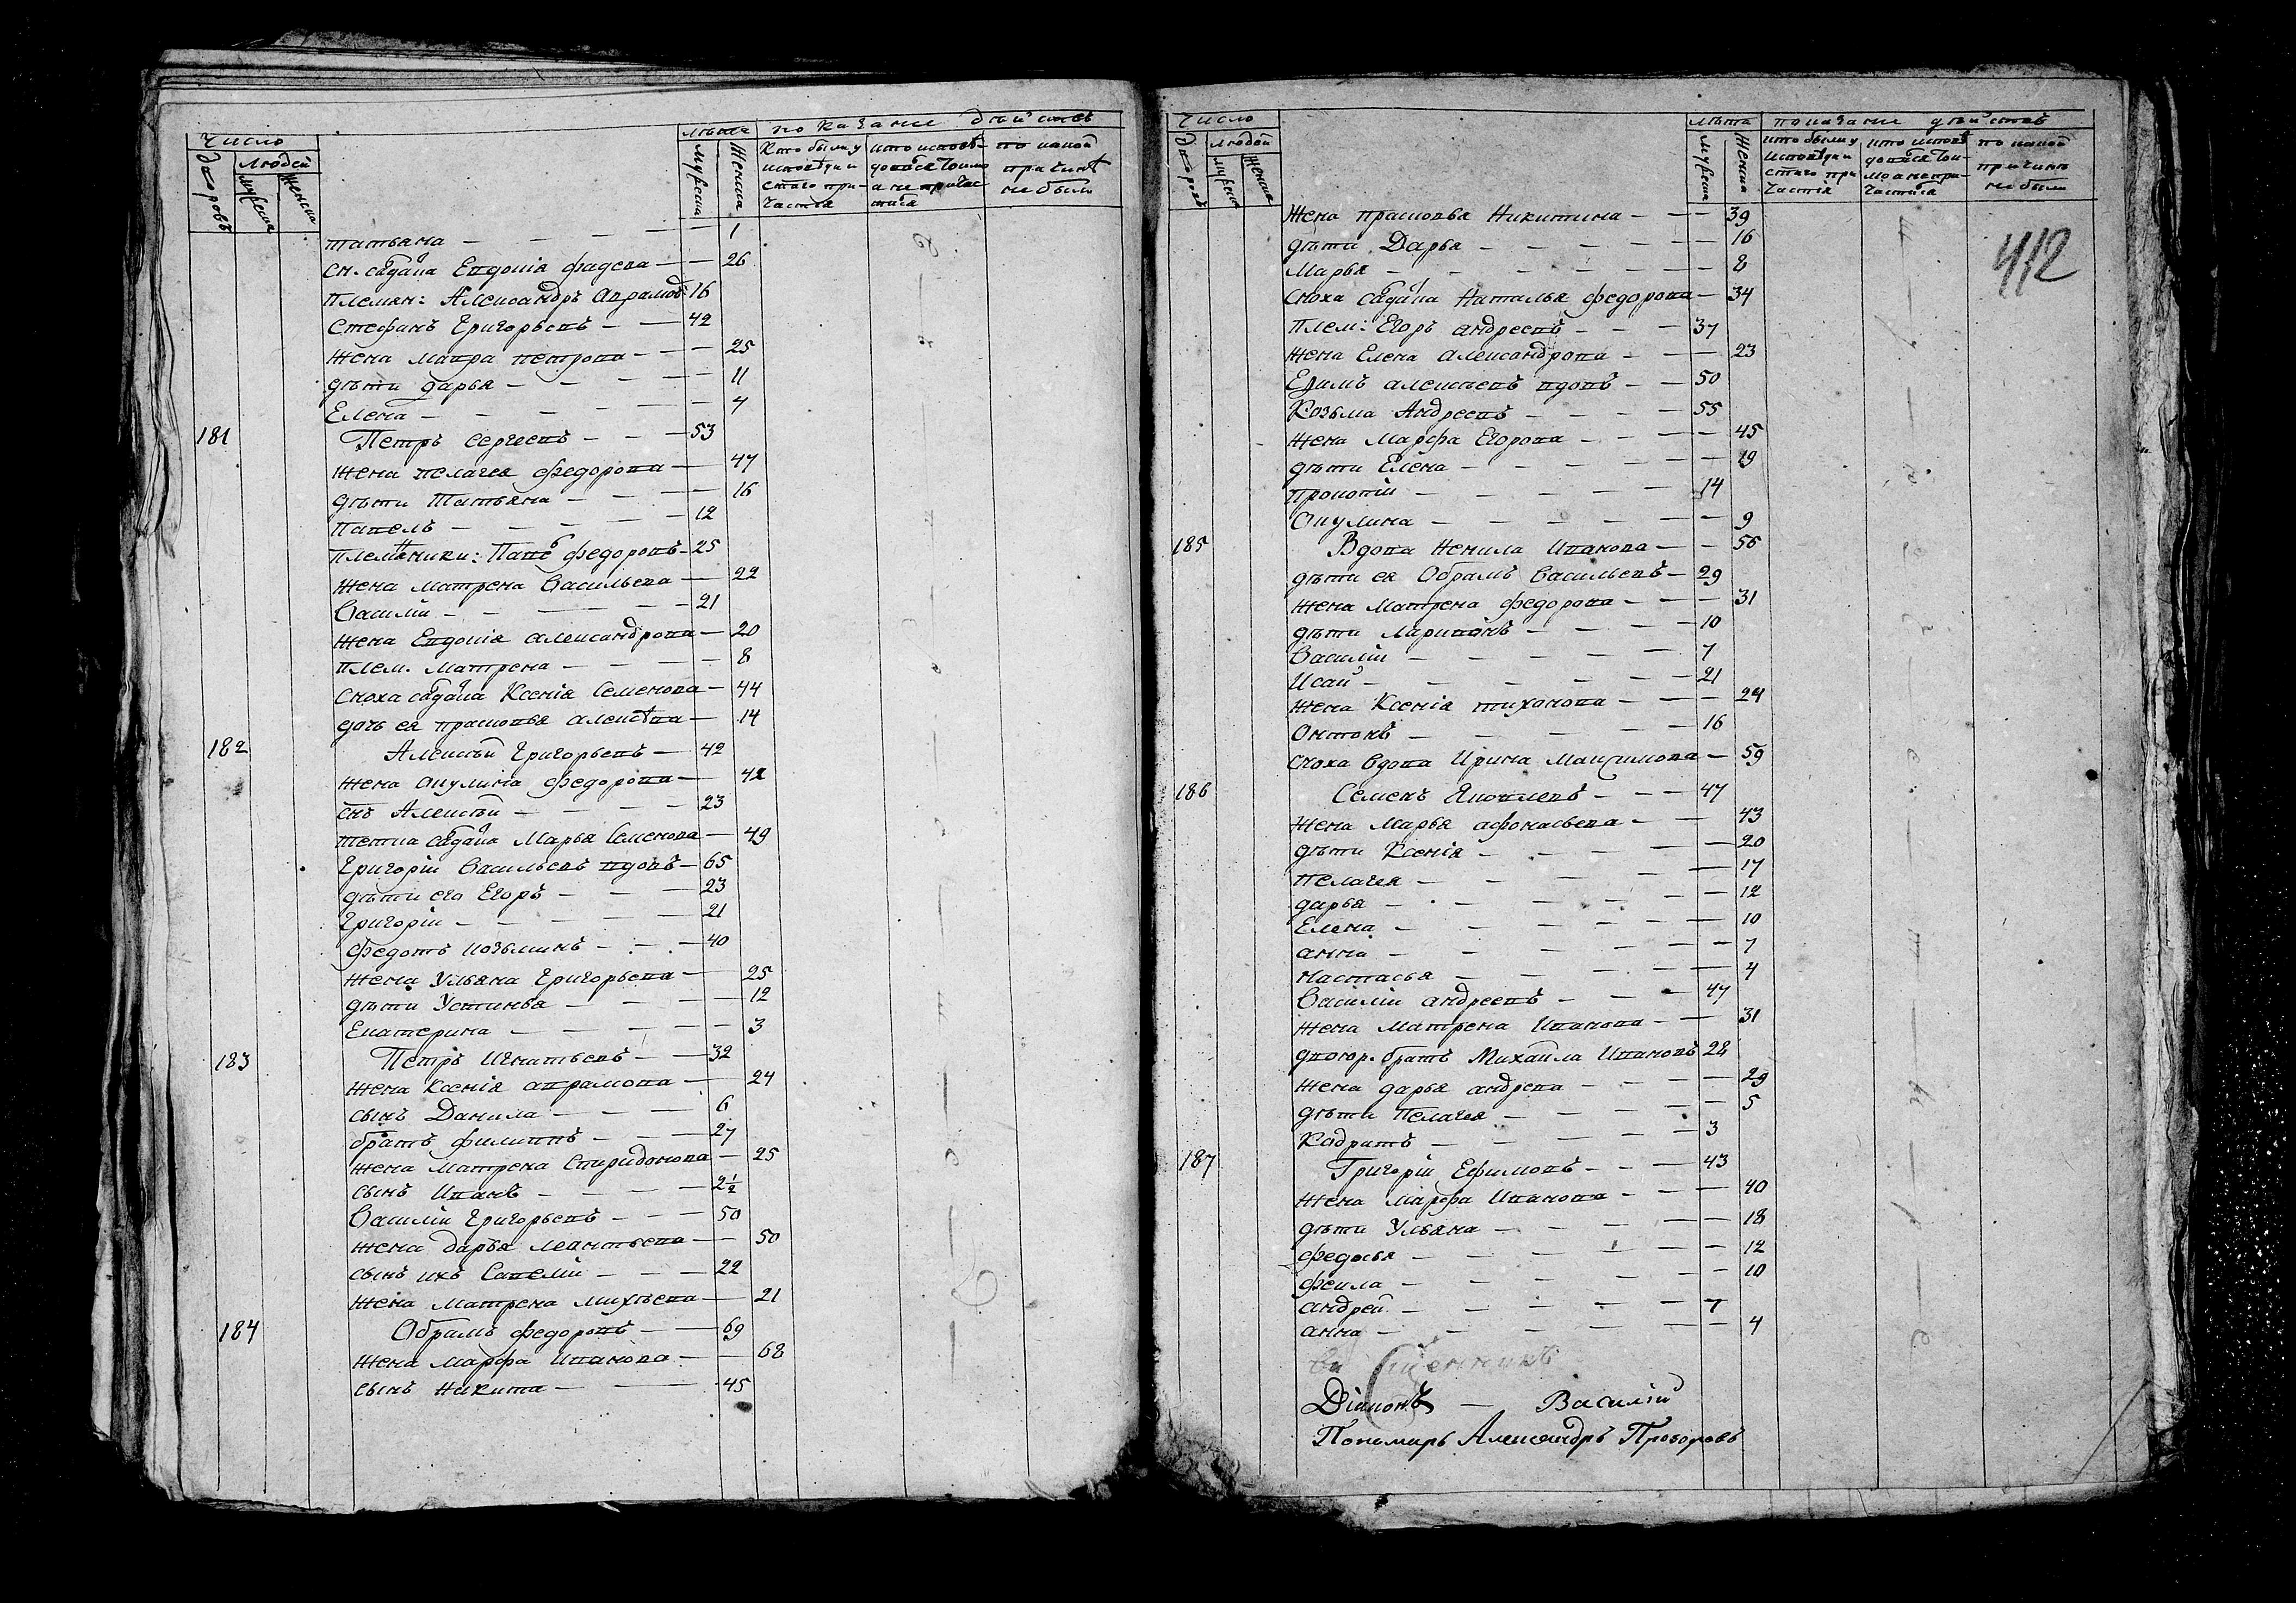 Число
дворовъ
людей
мужеска
женска
лѣта
мужеска
женска
показаніе дѣйствъ
кто были у исповѣди и стаго причастія
кто исповѣдовался токмо а не причастился
по какой причинѣ не были
татьяна — — — — — 1
сн. салдатка Евдокія фадева — — 26
племян: Александръ аврамовъ 16
Стефанъ Григорьевъ — — 42
жена мавра петрова — — — 25
дѣти дарья — — — — 11
Елена — — — — — 4
181 Петръ сергеевъ — — — 53
жена пелагея федорова — — 47
дѣти Татьяна — — — — 16
павелъ — — — — — 12
племянники: Паве федоровъ — 25
жена матрена васильева — — 22
василій — — — — — 21
жена Евдокія александрова — 20
плем. матрена — — — — 8
сноха Ксенія Семенова — 44
дочь ея прасковья алексѣва — 14
182 Алексѣй Григорьевъ — 42
жена акулина федорова — — 42
снъ Алексѣй — — — — 23
Марья Семенова — 49
Григорій васильевъ вдовъ — 65
дѣти его Егоръ — — — 23
Григорій — — — — — 21
федотъ козьминъ — — — 40
жена Ульяна Григорьева — — 25
дѣти Устинья — — — — 12
Екатерина — — — — — 3
183 Петръ Игнатьевъ — — 32
жена ксенія аврамова — — 24
сынъ Данила — — — 6
братъ филиппъ — — — 27
жена матрена Спиридонова — 25
сынъ Иванъ — — — — 2½
Василій Григорьевъ — — — 50
жена дарья леонтьева — — 50
сынъ ихъ Савелій — — — 22
жена Матрена михѣева — 21
184 Обрамъ федоровъ — — 69
жена марфа Иванова — — 68
сынъ Никита — — — 45
Число
дворовъ
людей
мужеска
женска
лѣта
мужеска
женска
показаніе дѣйствъ
кто были у исповѣди и стаго причастія
кто исповѣдовался токмо а не причастился
по какой причинѣ не были
412
жена прасковья Никитина — — — 39
дѣти Дарья — — — — — 16
Марья — — — — — — 8
сноха Наталья федорова — 34
плем: Егоръ андреевъ — — — 37
жена Елена александрова — — — 23
алексѣевъ вдовъ — — 50
Козьма Андреевъ — — — — 55
жена Марфа Егорова — — — — 45
дѣти Елена — — — — — — 19
прокопій — — — — — 14
акулина — — — — — — 9
185 Вдова Ненила Иванова — — 56
дѣти ея Обрамъ васильевъ — 29
жена Матрена федорова — — — 31
дѣти ларивонъ — — — — 10
василій — — — — — 7
Исай — — — — — — 21
жена Ксенія тихонова — — — 24
Онтонъ — — — — — 16
сноха вдова Ирина Максимова — 59
186 Семенъ Яковлевъ — — — 47
жена Марья афонасьева — — 43
дѣти Ксенія — — — — — 20
пелагея — — — — — — 17
дарья — — — — — — 12
Елена — — — — — — 10
анна — — — — — — 7
настасья — — — — — 4
василій андреевъ — — — 47
жена Матрена Иванова — — 31
двоюр. братъ Михайла Ивановъ 28
жена дарья андрева — — — — 29
дѣти Пелагея — — — — — 5
Кодратъ — — — — — 3
187 Григорій Ефимовъ — — — 43
жена Марфа Иванова — — — — 40
дѣти Ульяна — — — — — 18
федосья — — — — — — 12
фекла — — — — — — 10
андрей — — — — — — 7
анна — — — — — — 4
Діаконъ — Василій
Пономарь Александръ Прохоровъ